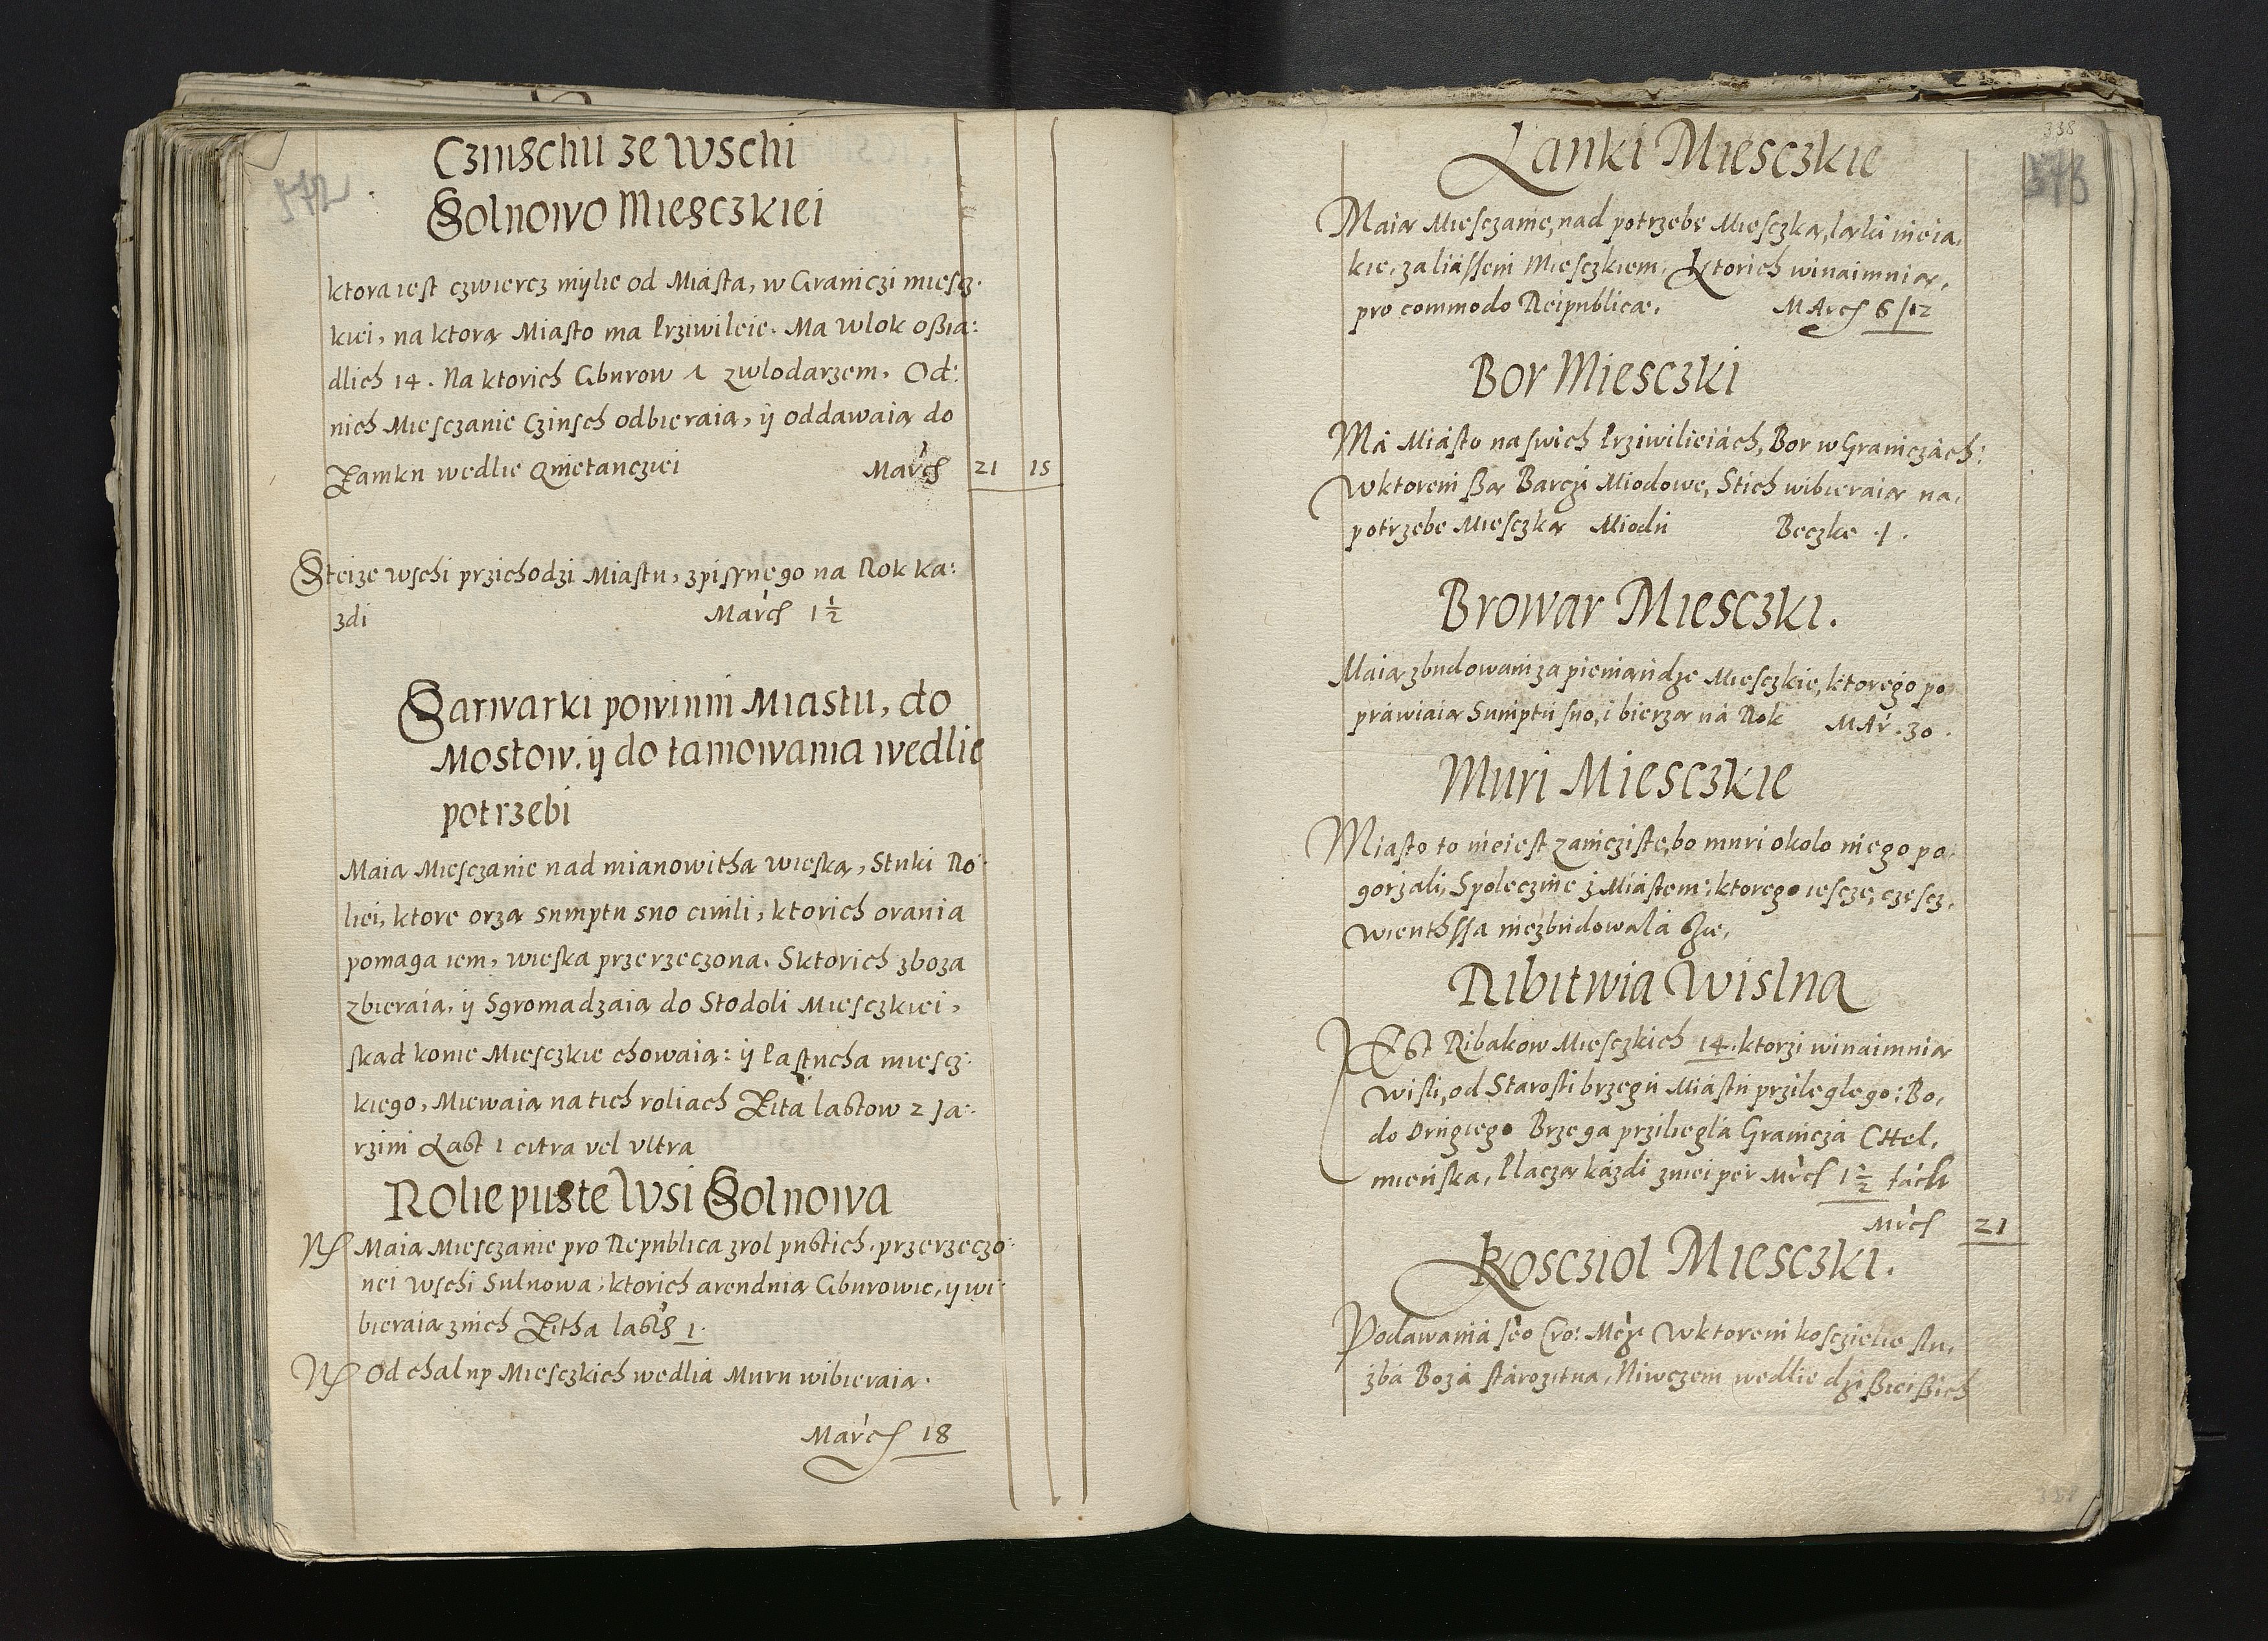 572
Czinschu ze wschi
Solnowo Miesczkiei
ktora iest czwiercz mylie od Miasta, w Graniczi miescz-
kiei, na ktorą Miasto ma Prziwileie. Ma Wlok oßia:
dlich 14. Na ktorich Gburow 1 zwlodarzem. Od:
nich Miesczanie Czinsch odbieraią, ÿ oddawaią do
Zamku wedlie Quietancziei March 21 15
Steize wschi przichodzi Miastu, zpissnego na Rok ka:
zdi March 1 ½
Sarwarki powinni Miastu, do
Mostow, ÿ do tamowania wedlie
potrzebi
Maia Miesczanie nad mianowithą wieską, Stuki Ro-
liei, ktore orzą sumptu suo ciuili, ktorich orania
pomaga iem, wieska przerzeczona. Sktorich zboza
zbieraią, ÿ Sgromadzaią do Stodoli Miesczkiei,
skad konie Miesczkie chowaią: ÿ Pastucha miescz-
kiego, Miewaią na tich roliach Zita lastow 2 Ja-
rzini Last 1 citra vel vltra
Rolie puste Wsi Solnowa
Maią Miesczanie pro Republica zrol pustich przerzeczo-
nei Wschi Sulnowa, ktorich arenduią Gburowie, ÿ wi-
bieraią znich Zitha last 1.
Od chalup Miesczkich wedlia Muru wibieraią.
March 18
338
573
Lanki Miesczkie
Maią Miesczanie, nad potrzebę Mieſczką, laki nieia,
kie, za liassem Miesczkiem, Ktorich winaimnią,
pro commodo Reipublicæ. March 6/12
Bor Miesczki
Ma Miasto na swich Prziwilieiach, Bor w Graniczach:
W ktorem ßą Barczi Miodowe, Stich wibieraią na,
potrzebe Miesczką Miodu Beczke 1.
Browar Miesczki.
Maią zbudowani za pieniandze Miesczkie, ktorego po
prawiaią Sumptu suo, i bierzą na Rok Mar. 30.
Muri Miesczkie
Miasto to nieiest zamcziste, bo muri okolo niego po-
gorzali, Spolecznie z Miastem, ktorego iescze, czescz,
wienthssa niezbudowala ßie,
Ribitwia Wislna
Jest Ribakow Miesczkich 14. ktorzi winaimnią
wisli, od Starosti brzegu Miastu przileglego: Bo,
do Drugiego Brzega przilegla Granicza Chel,
mienska, Placzą kazdi zniei per March 1 ½ facit
March 21
Kosczial Miesczki.
Podawania Cro: W ktorem kosczielie slu,
zba Boza starozitna, Niwczem wedlie dzißieißich